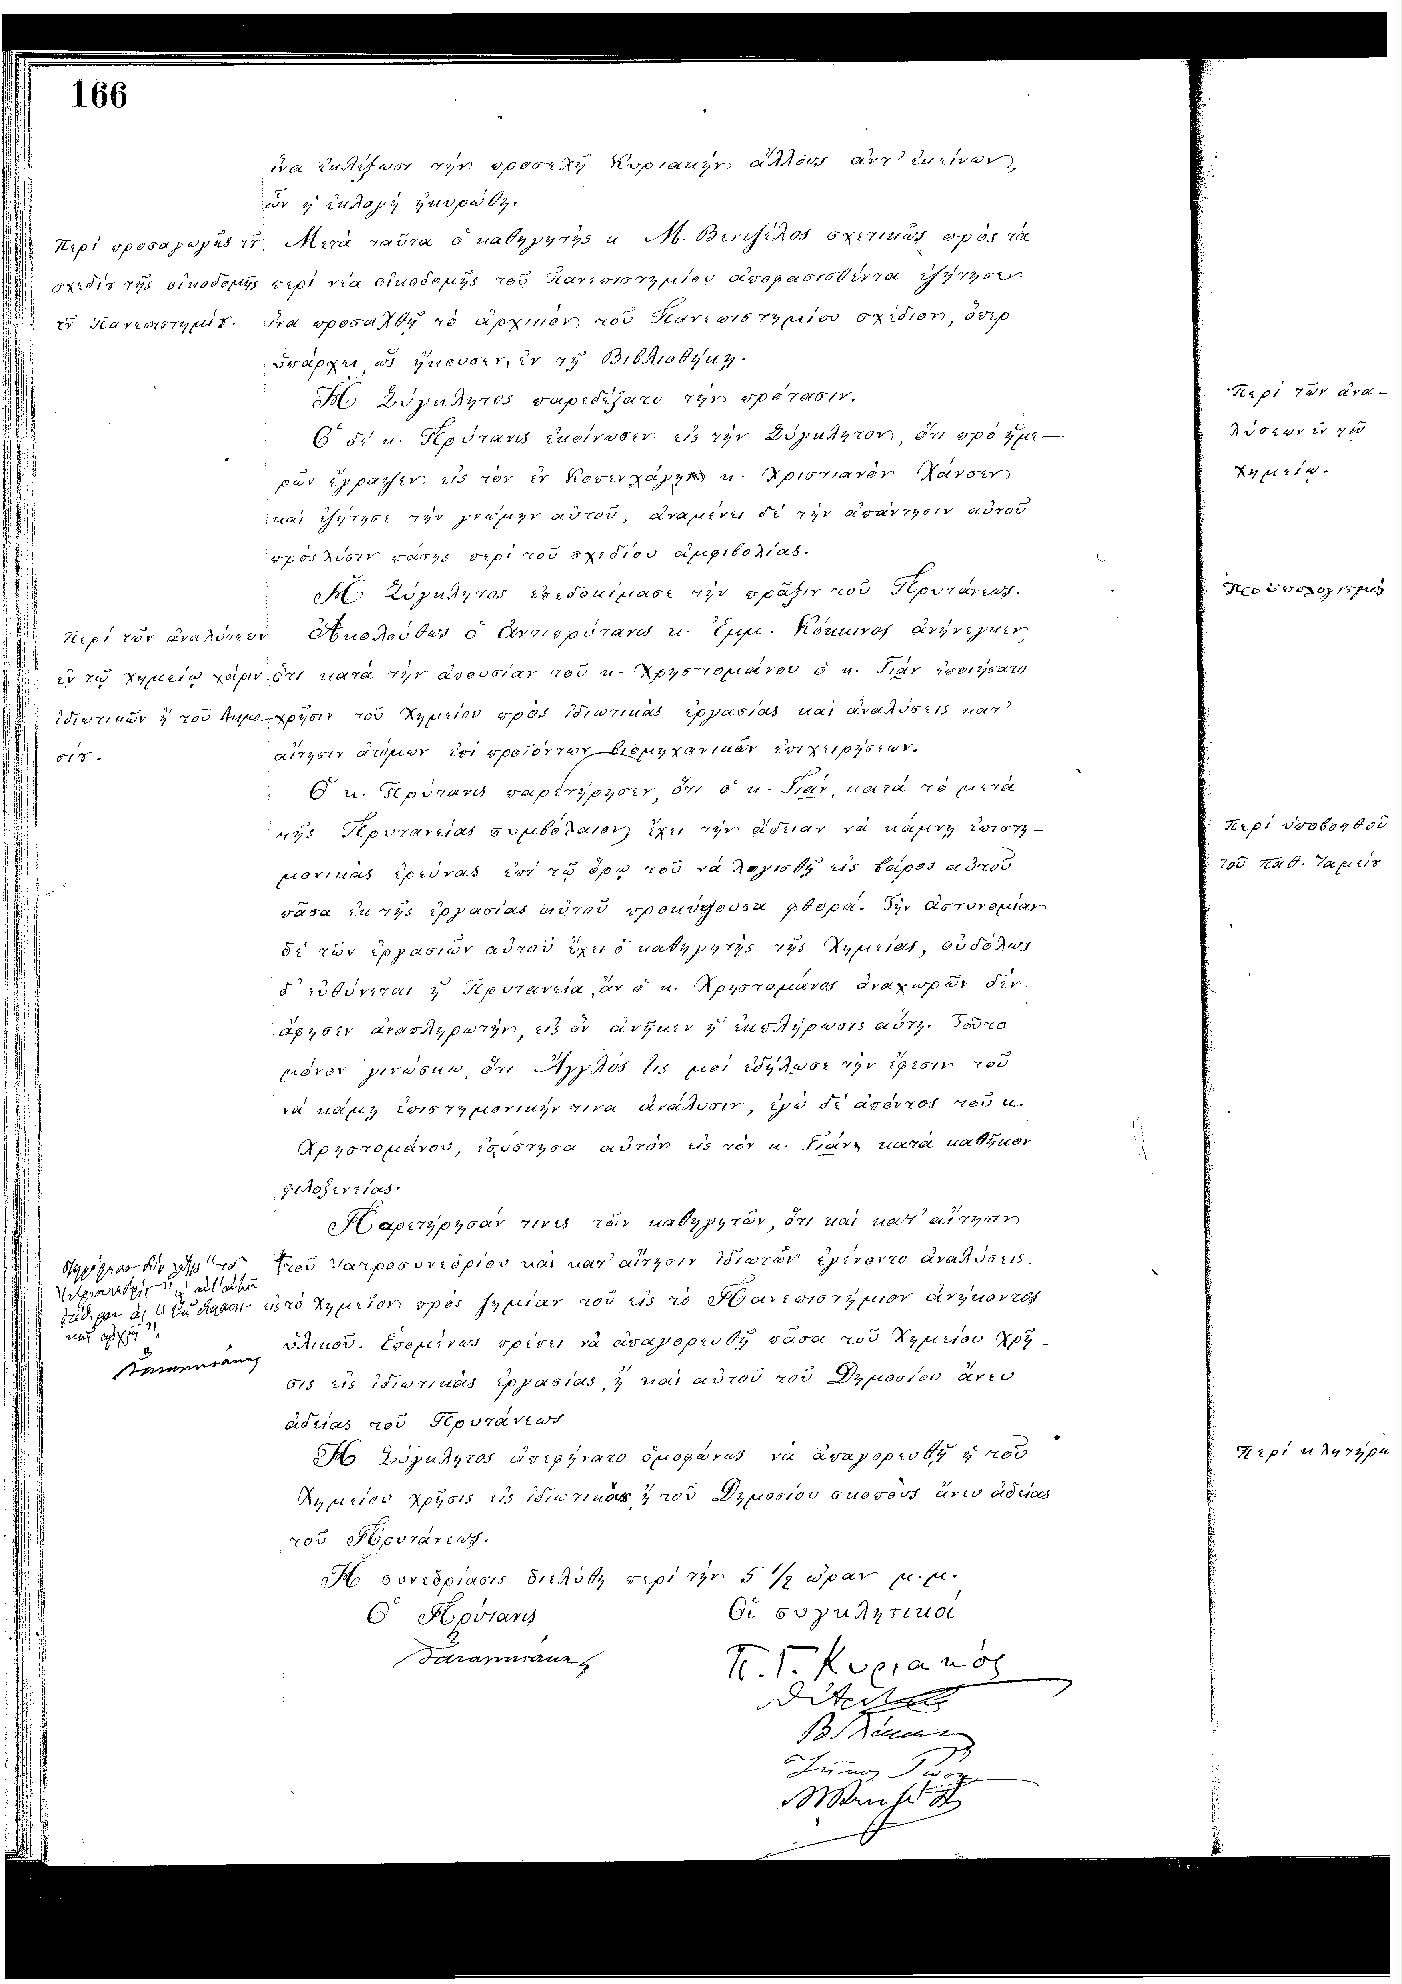 166
ἵνα ἐκλέξωσι τὴν προσεχῆ Κυριακὴν ἄλλους ἀντ' ἐκείνων,
ὧν ἡ ἐκλογὴ ἠκυρώθη.
Περὶ προσαγωγῆς τοῦ
σχεδίου τῆς οἰκοδομῆς
τοῦ Πανεπιστημίου.
Μετὰ ταῦτα ὁ καθηγητὴς κ. Μ. Βενιζέλος σχετικῶς πρὸς τὰ
περὶ νέα οἰκοδομῆς τοῦ Πανεπιστημίου ἀποφασισθέντα ἐζήτησεν
ἵνα προσαχθῇ τὸ ἀρχικὸν τοῦ Πανεπιστημίου σχέδιον, ὅπερ
ὑπάρχει, ὡς ἤκουσεν, ἐν τῇ Βιβλιοθήκῃ.
Ἡ Σύγκλητος παρεδέξατο τὴν πρότασιν.
Ὁ δὲ κ. Πρύτανις ἐκοίνωσεν εἰς τὴν Σύγκλητον, ὅτι πρὸ ἡμε-
ρῶν ἔγραψεν εἰς τὸν ἐν Κοπενχάγῃ κ. Χριστιανὸν Χάνσεν
καὶ ἐζήτησε τὴν γνώμην αὐτοῦ, ἀναμένει δὲ τὴν ἀπάντησιν αὐτοῦ
πρὸς λύσιν πάσης περὶ τοῦ σχεδίου ἀμφιβολίας.
Ἡ Σύγκλητος ἐπεδοκίμασε τὴν πρᾶξιν τοῦ Πρυτάνεως.
Περὶ τῶν ἀναλύσεων
ἐν τῷ Χημείῳ χάριν
ἰδιωτικῶν ἢ τοῦ Δημο-
σίου.
Ἀκολούθως ὁ Ἀντιπρύτανις κ. Ἐμμ. Κόκκινος ἀνήνεγκεν,
ὅτι κατὰ τὴν ἀπουσίαν τοῦ κ. Χρηστομάνου ὁ κ. Γιὰν ἐποιήσατο
χρῆσιν τοῦ Χημείου πρὸς ἰδιωτικὰς ἐργασίας καὶ ἀναλύσεις κατ'
αἴτησιν ἀτόμων ἐπὶ προϊόντων βιομηχανικῶν ἐπιχειρήσεων.
Ὁ κ. Πρύτανις παρετήρησεν, ὅτι ὁ κ. Γιὰν, κατὰ τὸ μετὰ
τῆς Πρυτανείας συμβόλαιον, ἔχει τὴν ἄδειαν νὰ κάμνῃ ἐπιστη-
μονικὰς ἐρεύνας ἐπὶ τῷ ὅρῳ τοῦ νὰ λογισθῇ εἰς βάρος αὐτοῦ
πᾶσα ἐκ τῆς ἐργασίας αὐτοῦ προκύψουσα φθορά. Τὴν ἀστυνομίαν
δὲ τῶν ἐργασιῶν αὐτοῦ ἔχει ὁ καθηγητὴς τῆς Χημείας, οὐδόλως
δ' εὐθύνεται ἡ Πρυτανεία, ἂν ὁ κ. Χρηστομάνος ἀναχωρῶν δὲν
ἄφησεν ἀναπληρωτὴν, εἰς ὃν ἀνῆκεν ἡ ἐκπλήρωσις αὕτη. Τοῦτο
μόνον γινώσκω, ὅτι Ἄγγλος τις μοὶ ἐδήλωσε τὴν ἔφεσιν τοῦ
νὰ κάμῃ ἐπιστημονικήν τινα ἀνάλυσιν, ἐγὼ δὲ ἀπόντος τοῦ κ.
Χρηστομάνου, ἐσύστησα αὐτὸν εἰς τὸν κ. Γιὰν κατὰ καθῆκον
φιλοξενείας.
Παρετήρησάν τινες τῶν καθηγητῶν, ὅτι καὶ κατ' αἴτησιν
τοῦ Ἰατροσυνεδρίου καὶ κατ' αἴτησιν ἰδιωτῶν ἐγένοντο ἀναλύσεις
εἰς τὸ Χημεῖον πρὸς ζημίαν τοῦ εἰς τὸ Πανεπιστήμιον ἀνήκοντος
ὑλικοῦ. Ἑπομένως πρέπει νὰ ἀπαγορευθῇ πᾶσα τοῦ Χημείου χρῆ-
σις εἰς ἰδιωτικὰς ἐργασίας, ἢ καὶ αὐτοῦ τοῦ Δημοσίου ἄνευ
ἀδείας τοῦ Πρυτάνεως
Ἡ Σύγκλητος ἀπεφήνατο ὁμοφώνως νὰ ἀπαγορευθῇ ἡ τοῦ
Χημείου χρῆσις εἰς ἰδιωτικοὺς ἢ τοῦ Δημοσίου σκοποὺς ἄνευ ἀδείας
τοῦ Πρυτάνεως.
Ἡ συνεδρίασις διελύθη περὶ τὴν 5 1/2 ὥραν μ.μ.
Ὁ Πρύτανις
Οἱ συγκλητικοί
Π. Γ. Κυριακός
Περὶ τῶν ἀνα-
λύσεων ἐν τῷ
Χημείῳ.
Προϋπολογισμὸς
Περὶ ὑποβοηθοῦ
τοῦ παθ. Ταμείου
Περὶ κλητήρα